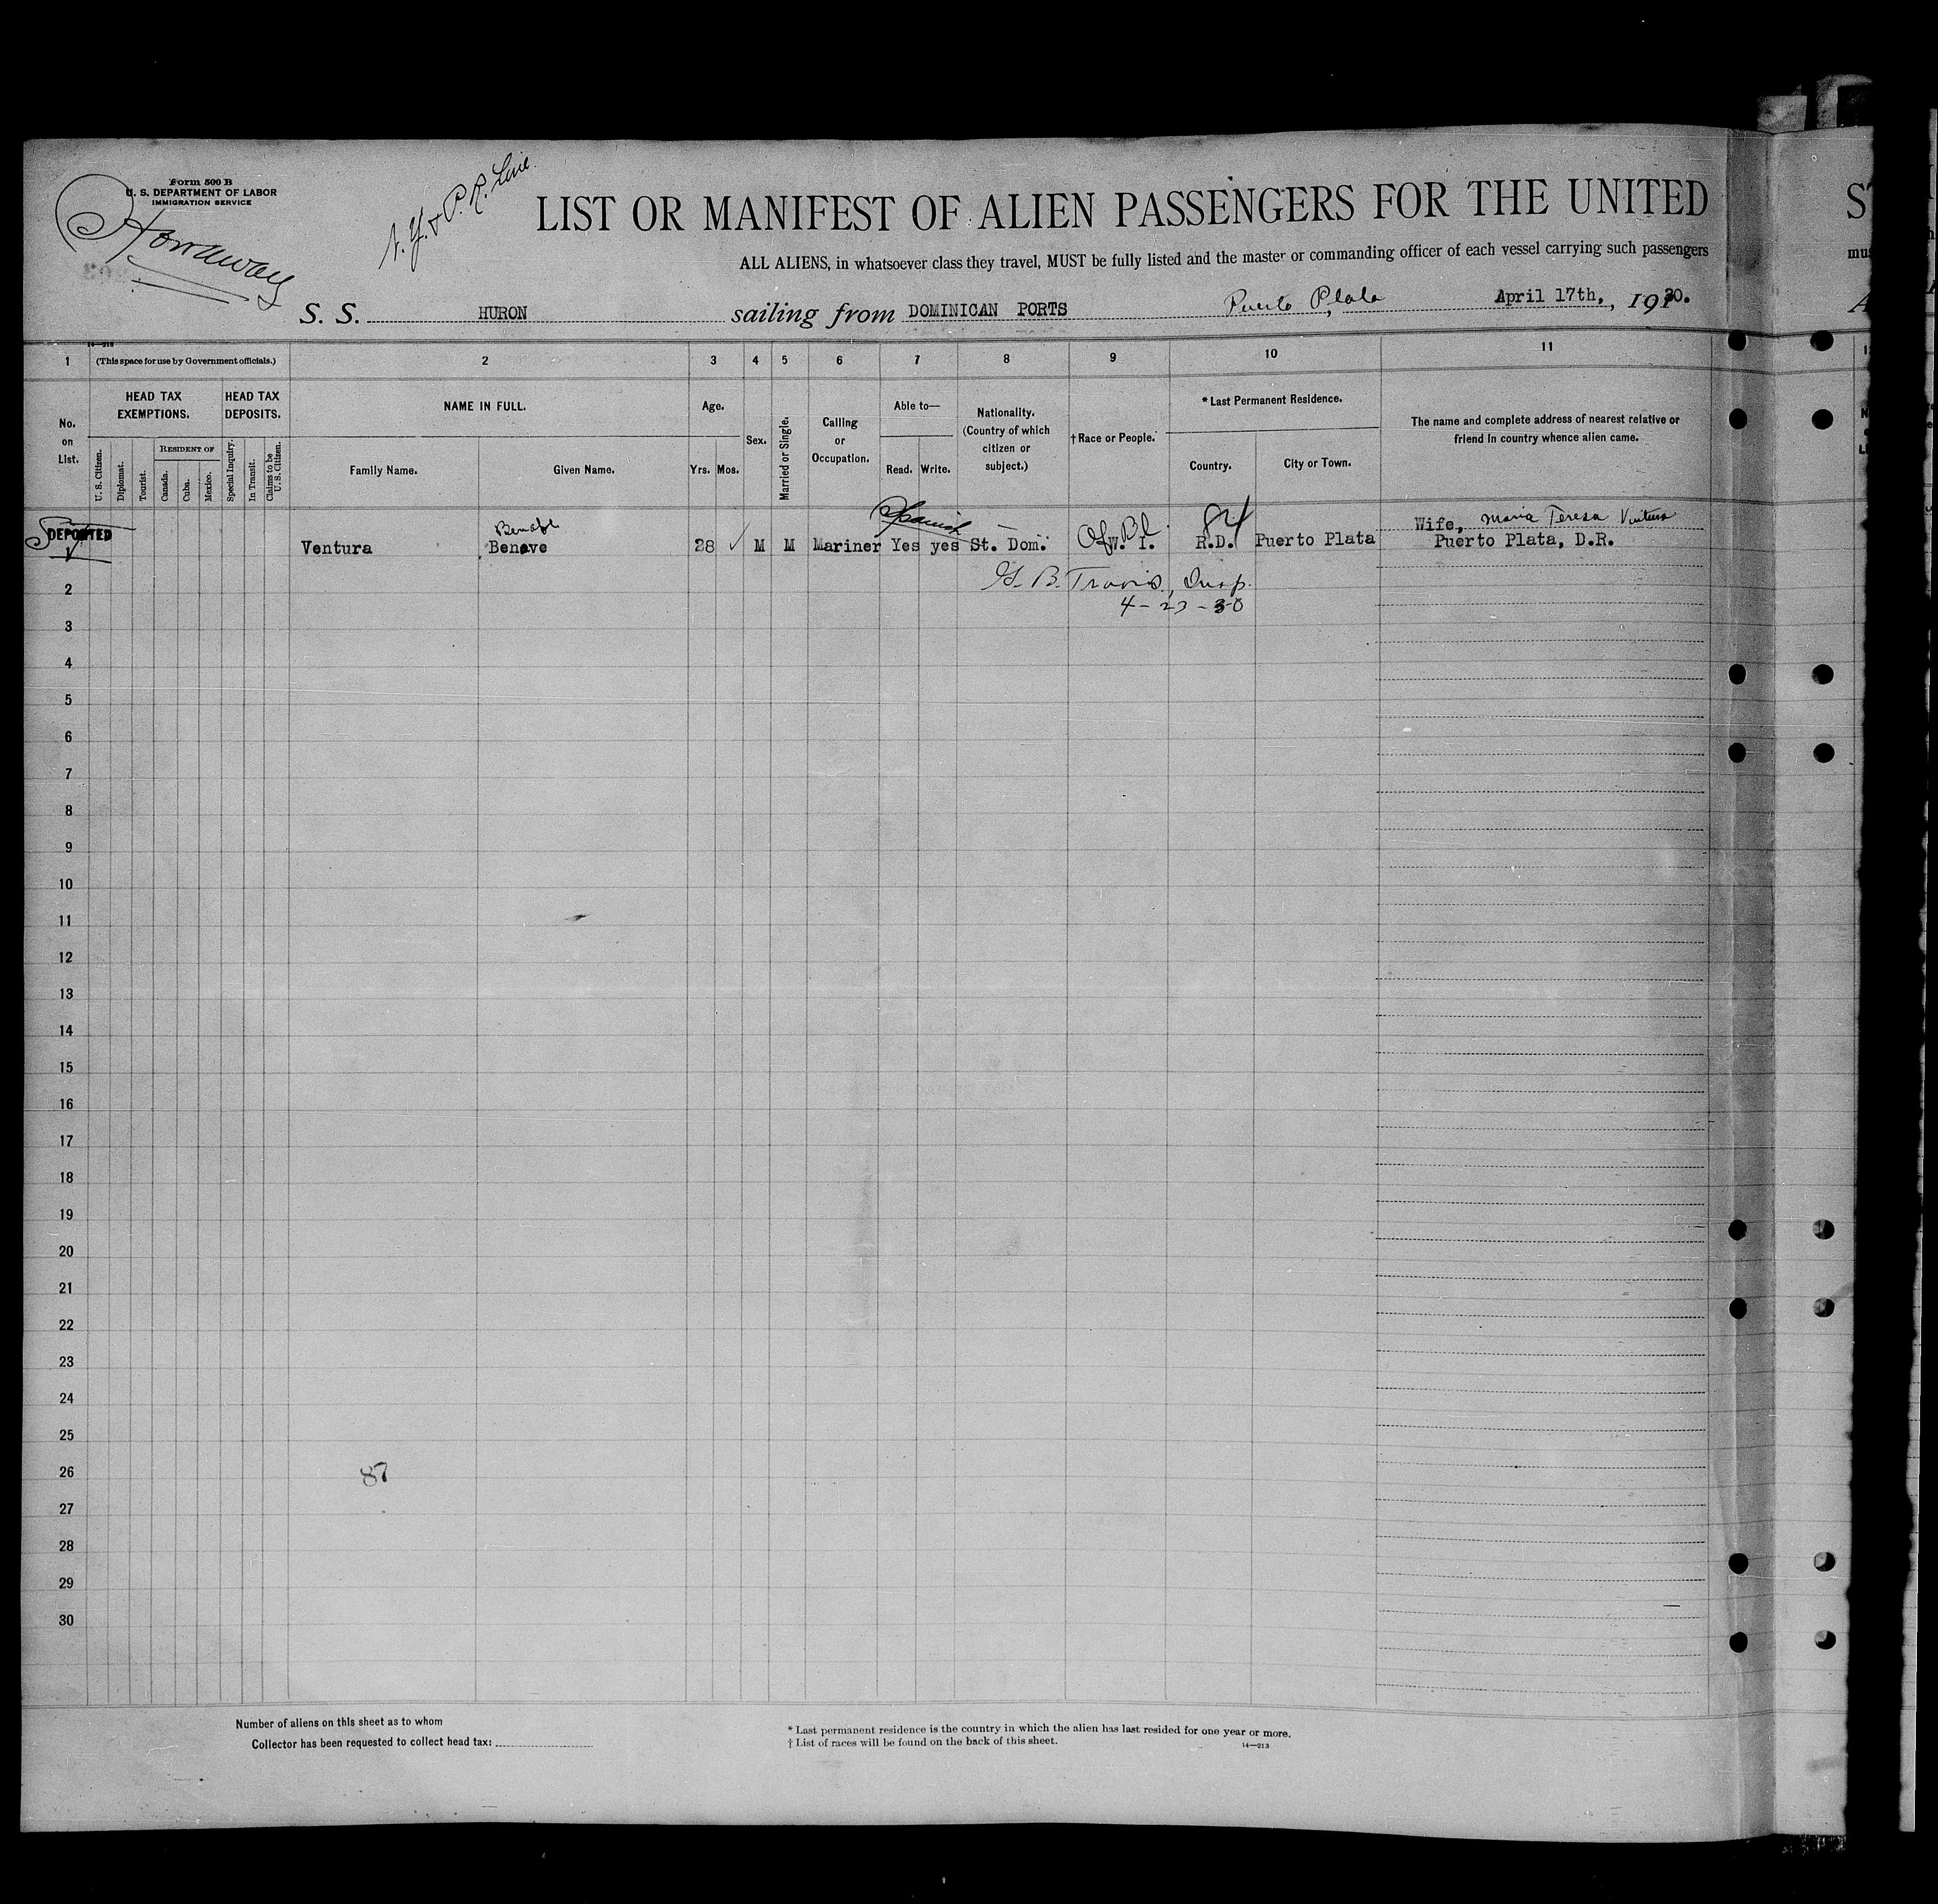 Form 500 B
U. S. DEPARTMENT OF LABOR
IMMIGRATION SERVICE
N. Y. & P. R. Line
LIST OR MANIFEST OF ALIEN PASSENGERS FOR THE UNITED
ALL ALIENS, in whatsoever class they travel, MUST be fully listed and the master or commanding officer of each vessel carrying such passengers
S. S. HURON sailing from DOMINICAN PORTS Puerto Plata, April 17th, , 1930.
1 (This space for use by Government officials.) 2 3 4 5 6 7 8 9 10 11
No. on List.
HEAD TAX EXEMPTIONS.
HEAD TAX DEPOSITS.
U. S. Citizen.
Diplomat.
Tourist.
RESIDENT OF
Canada.
Cuba.
Mexico.
Special Inquiry.
In Transit.
Claims to be U. S. Citizen.
NAME IN FULL.
Family Name.
Given Name.
Age.
Yrs. Mos.
Sex.
Married or Single.
Calling or Occupation.
Able to—
Read. Write.
Nationality. (Country of which citizen or subject.)
†Race or People.
* Last Permanent Residence.
Country.
City or Town.
The name and complete address of nearest relative or friend in country whence alien came.
DEPORTED
Spanish
84
Wife, Maria Teresa Ventura
Ventura Benave 28 M M Mariner Yes yes St. Dom. W. I. R.D. Puerto Plata Puerto Plata, D.R.
G. B. Travis, Insp.
4-23-30
2
3
4
5
6
7
8
9
10
11
12
13
14
15
16
17
18
19
20
21
22
23
24
25
26
87
27
28
29
30
Number of aliens on this sheet as to whom
Collector has been requested to collect head tax:
* Last permanent residence is the country in which the alien has last resided for one year or more.
† List of races will be found on the back of this sheet.
14—213